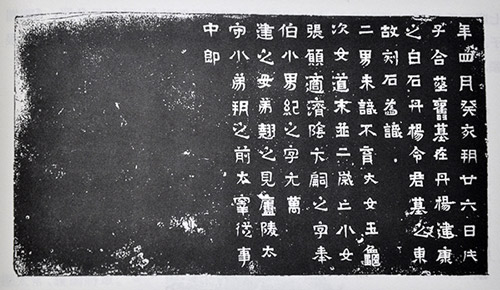 年四月癸亥朔廿六日戊
子合葬舊墓在丹楊建康
之白石丹楊令君墓之東
故刻石為識
二男未識不育大女玉龜
次女道末並二歲亡小女
張願適濟陰卞嗣之字奉
伯小男紀之字元萬
建之母弟翹之見廬陵太
守小弟朔之前太宰從事
中郎